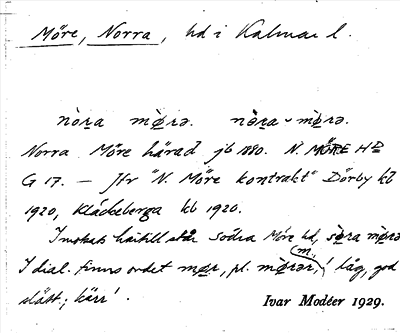 Möre, Norra, hd i Kalmar l.
nòra mø̀rə. nòra-mø̀rə.
Norra Möre härad jb 1880. N. MÖRE HD
G 17. — Jfr "N. Möre kontrakt" Dörby kb
1920, Kläckeberga kb 1920.
I motsats härtill står Södra Möre hd, sø̀ra mø̀rə
I dial. finns ordet mør, pl. mø̀rər, (m.) 'låg, god
slätt; kärr'.
Ivar Modéer 1929.